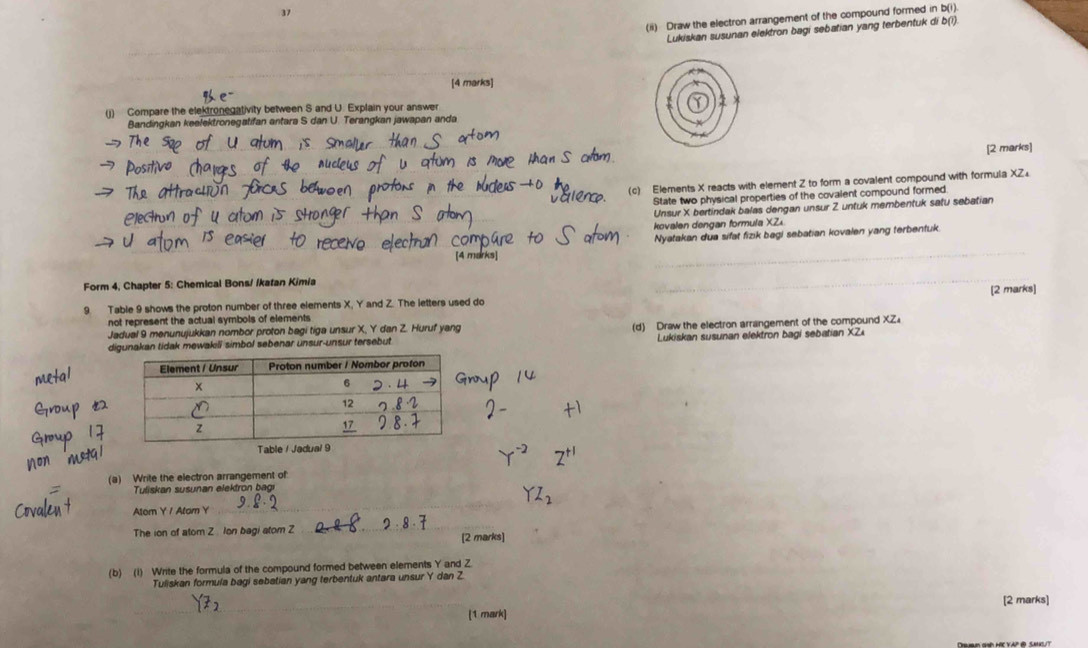 37
[4 marks]
e-
(j) Compare the elektronegativity between S and U. Explain your answer
Bandingkan keelektronegatifan antara S dan U. Terangkan jawapan anda.
→ The size of U atum is smaller than S atom
→ Positive charges of the nucleus of U atum is more than S atom.
→ The attraction forces between protons in the nucleus to the valence.
electron of U atom is stronger than S atom
→ U atom is easier to receive electron compare to S atom.
[4 marks]
Form 4, Chapter 5: Chemical Bons/ Ikatan Kimia
9. Table 9 shows the proton number of three elements X, Y and Z. The letters used do
not represent the actual symbols of elements
Jadual 9 menunujukkan nombor proton bagi tiga unsur X, Y dan Z. Huruf yang
digunakan tidak mewakili simbol sebenar unsur-unsur tersebut
Element / Unsur Proton number / Nombor proton
metal X 6 2.4 → Group 14
Group 2 Y 12 2.8.2 2- +1
Group 17 Z 17 2.8.7
non metal
Table / Jadual 9
Y-2 Z+1
=
Covalent
YZ2
(a) Write the electron arrangement of:
Tuliskan susunan elektron bagi
Atom Y / Atom Y 2.8.2
The ion of atom Z Ion bagi atom Z 2.8.8. 2.8.7
[2 marks]
(b) (i) Write the formula of the compound formed between elements Y and Z.
Tuliskan formula bagi sebatian yang terbentuk antara unsur Y dan Z.
YZ2
[1 mark]
(ii) Draw the electron arrangement of the compound formed in b(i).
Lukiskan susunan elektron bagi sebatian yang terbentuk di b(i).
Y
[2 marks]
(c) Elements X reacts with element Z to form a covalent compound with formula XZ4.
State two physical properties of the covalent compound formed.
Unsur X bertindak balas dengan unsur Z untuk membentuk satu sebatian
kovalen dengan formula XZ4.
Nyatakan dua sifat fizik bagi sebatian kovalen yang terbentuk.
[2 marks]
(d) Draw the electron arrangement of the compound XZ4
Lukiskan susunan elektron bagi sebatian XZ4
[2 marks]